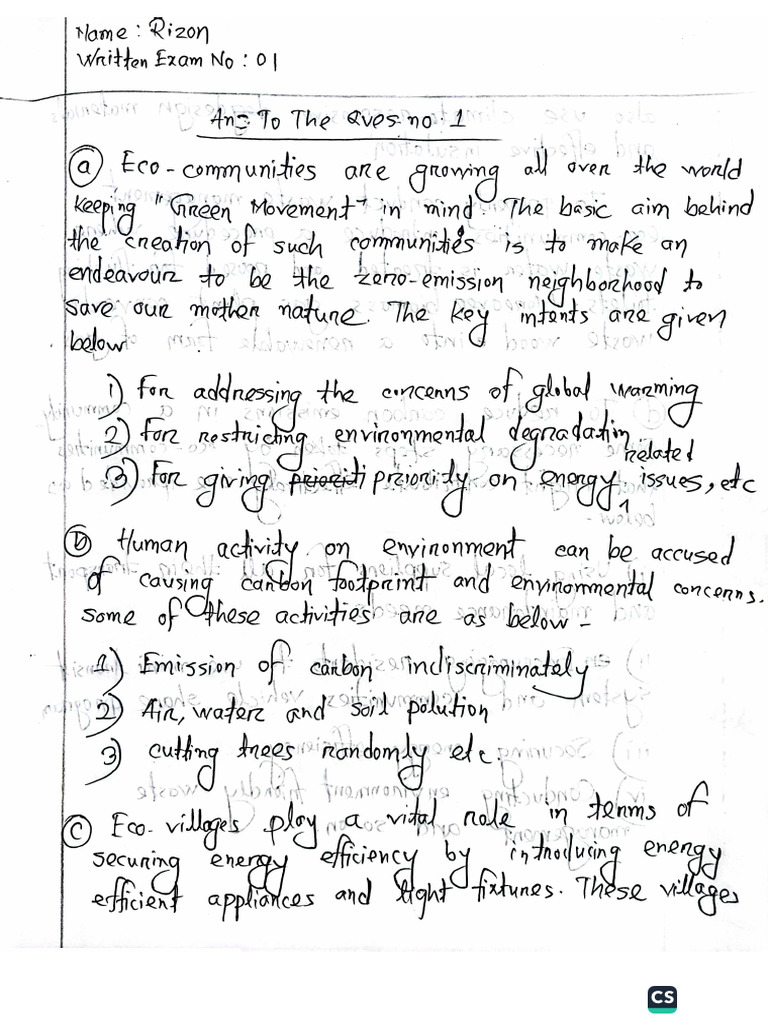 Name : Rizon
Written Exam No : 01
Ans To The Ques no 1
(a) Eco-communities are growing all over the world
keeping "Green Movement" in mind. The basic aim behind
the creation of such communities is to make an
endeavour to be the zero-emission neighborhood to
save our mother nature. The key intents are given
below
1) For addressing the concerns of global warming
2) For restricting environmental degradation
3) For giving priority on energy related issues, etc
(b) Human activity on environment can be accused
of causing carbon footprint and environmental concerns.
some of these activities are as below -
1) Emission of carbon indiscriminately
2) Air, water and soil polution
3) cutting trees randomly etc.
(c) Eco-villages play a vital role in terms of
securing energy efficiency by introducing energy
efficient appliances and light fixtures. These villages
CS